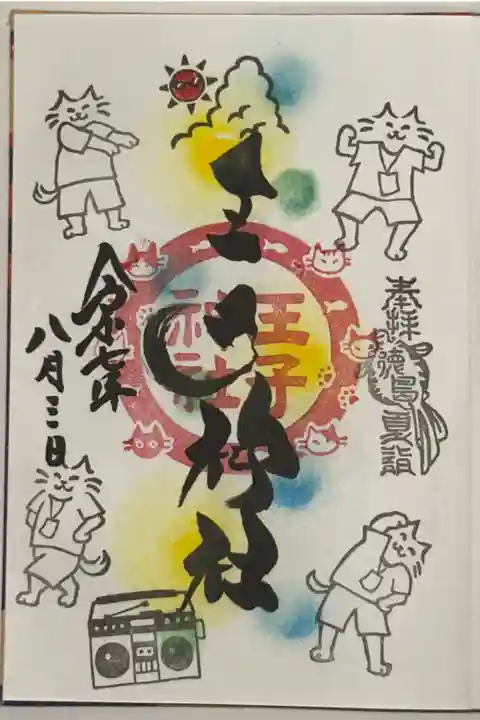 奉拝 徳島夏詣
王子神社
王子
神社
八月三日